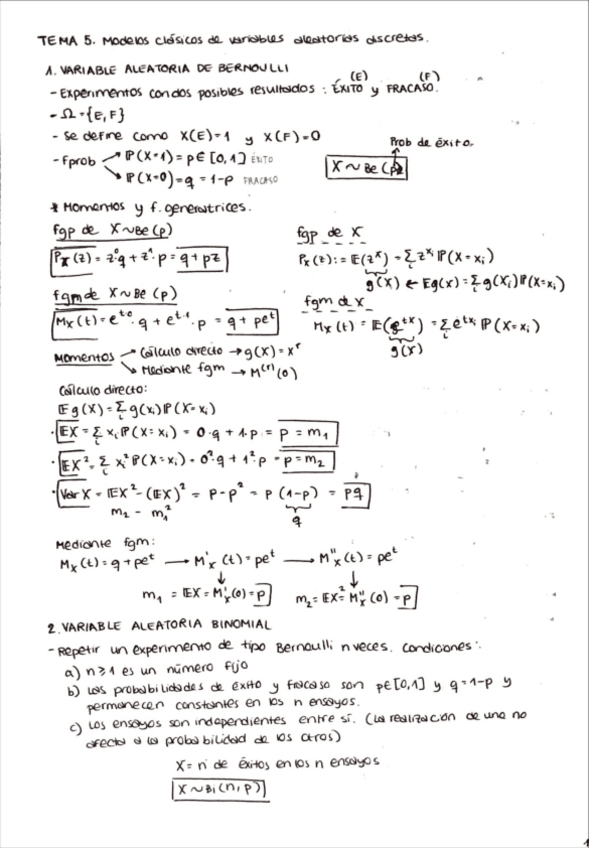 TEMA 5. Modelos clásicos de variables aleatorias discretas.
1. VARIABLE ALEATORIA DE BERNOULLI
- Experimentos con dos posibles resultados : ÉXITO (E) y FRACASO (F).
- Ω = {E, F}
- Se define como X(E)=1 y X(F)=0
- fprob → P(X=1) = p ∈ [0,1] ÉXITO
→ P(X=0) = q = 1-p FRACASO
Prob de éxito.
X ~ Be(p)
* Momentos y f. generatrices.
fgp de X~Be(p)
P_X(z) = z⁰·q + z¹·p = q + pz
fgp de X
P_X(z) := E(z^X) = Σ_i z^{x_i} P(X=x_i)
g(X) ← Eg(X) = Σ_i g(x_i) P(X=x_i)
fgm de X~Be(p)
M_X(t) = e^{t·0}·q + e^{t·1}·p = q + pe^t
fgm de X
M_X(t) = E(e^{tX}) = Σ_i e^{tx_i} P(X=x_i)
g(X)
Momentos → Cálculo directo → g(X) = X^r
→ Mediante fgm → M^{(r)}(0)
Cálculo directo:
E g(X) = Σ_i g(x_i) P(X=x_i)
· EX = Σ_i x_i P(X=x_i) = 0·q + 1·p = p = m₁
· EX² = Σ_i x_i² P(X=x_i) = 0²·q + 1²·p = p = m₂
· Var X = EX² - (EX)² = p - p² = p(1-p) = pq
m₂ - m₁²
q
Mediante fgm:
M_X(t) = q + pe^t → M'_X(t) = pe^t → M''_X(t) = pe^t
m₁ = EX = M'_X(0) = p
m₂ = EX² = M''_X(0) = p
2. VARIABLE ALEATORIA BINOMIAL
- Repetir un experimento de tipo Bernoulli n veces. Condiciones:
a) n ≥ 1 es un número fijo
b) Las probabilidades de éxito y fracaso son p∈[0,1] y q=1-p y
permanecen constantes en los n ensayos.
c) Los ensayos son independientes entre sí. (La realización de uno no
afecta a la probabilidad de los otros)
X = nº de éxitos en los n ensayos
X ~ Bi(n,p)
1